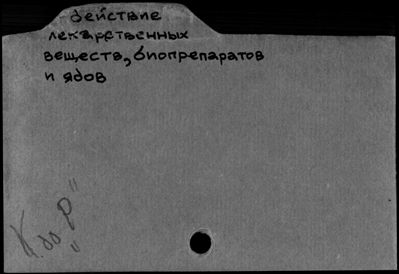 действие
лекарственных
веществ, биопрепаратов
и ядов